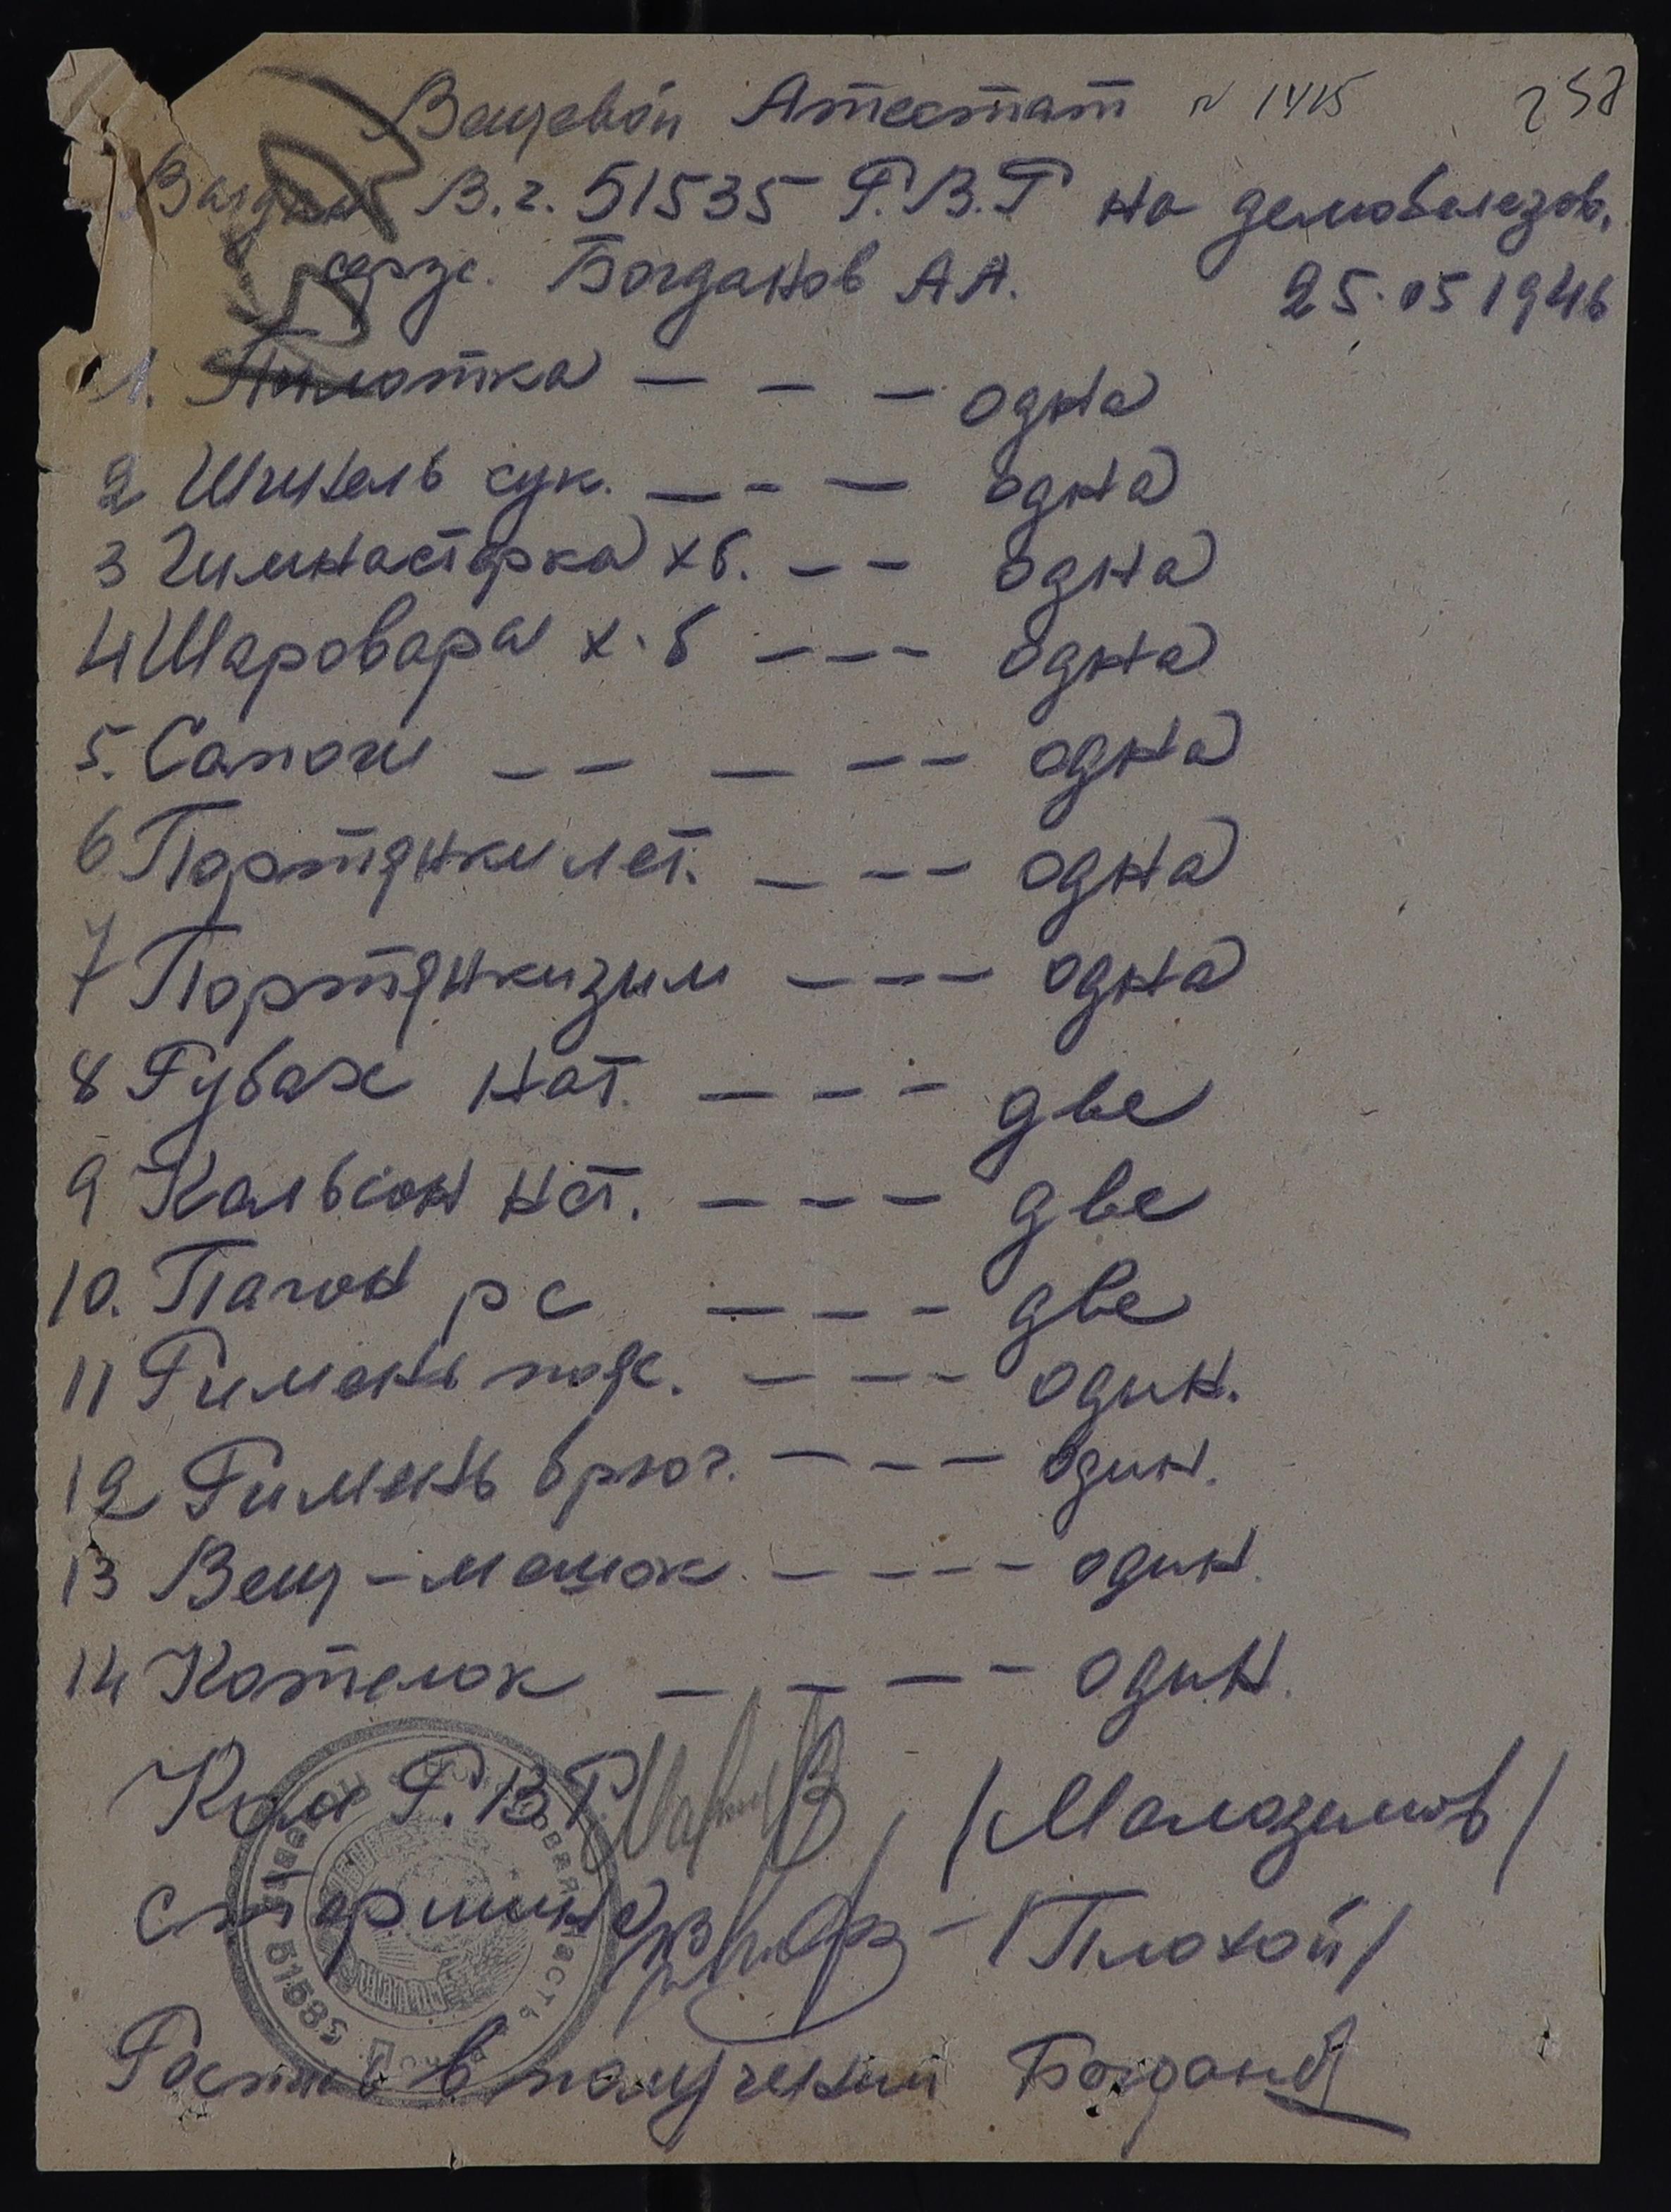 Вещевой Атестат N 1415 258
Выдан В.г. 51535 Р.В.Г на демобелезов.
серж. Богданов А А. 25.05 1946
1. Пилотка — — — одна
2 Шинель сук. — — — одна
3 Гимнастёрка хб. — — одна
4 Шаровары х.б — — — одна
5. Сапоги — — — — — одна
6 Портянки лет. — — — одна
7 Портянки зим — — — одна
8 Рубах нат. — — — две
9 Кальсон нат. — — — две
10. Пагон р с — — — две
11 Римень пояс. — — — один.
12 Римень брюч. — — — один.
13 Вещ-мешок — — — — один.
14 Котелок — — — — один.
Ком Р.В.Г /Малоземов/
старшина — /Плохой/
Роспис в получении Богданов